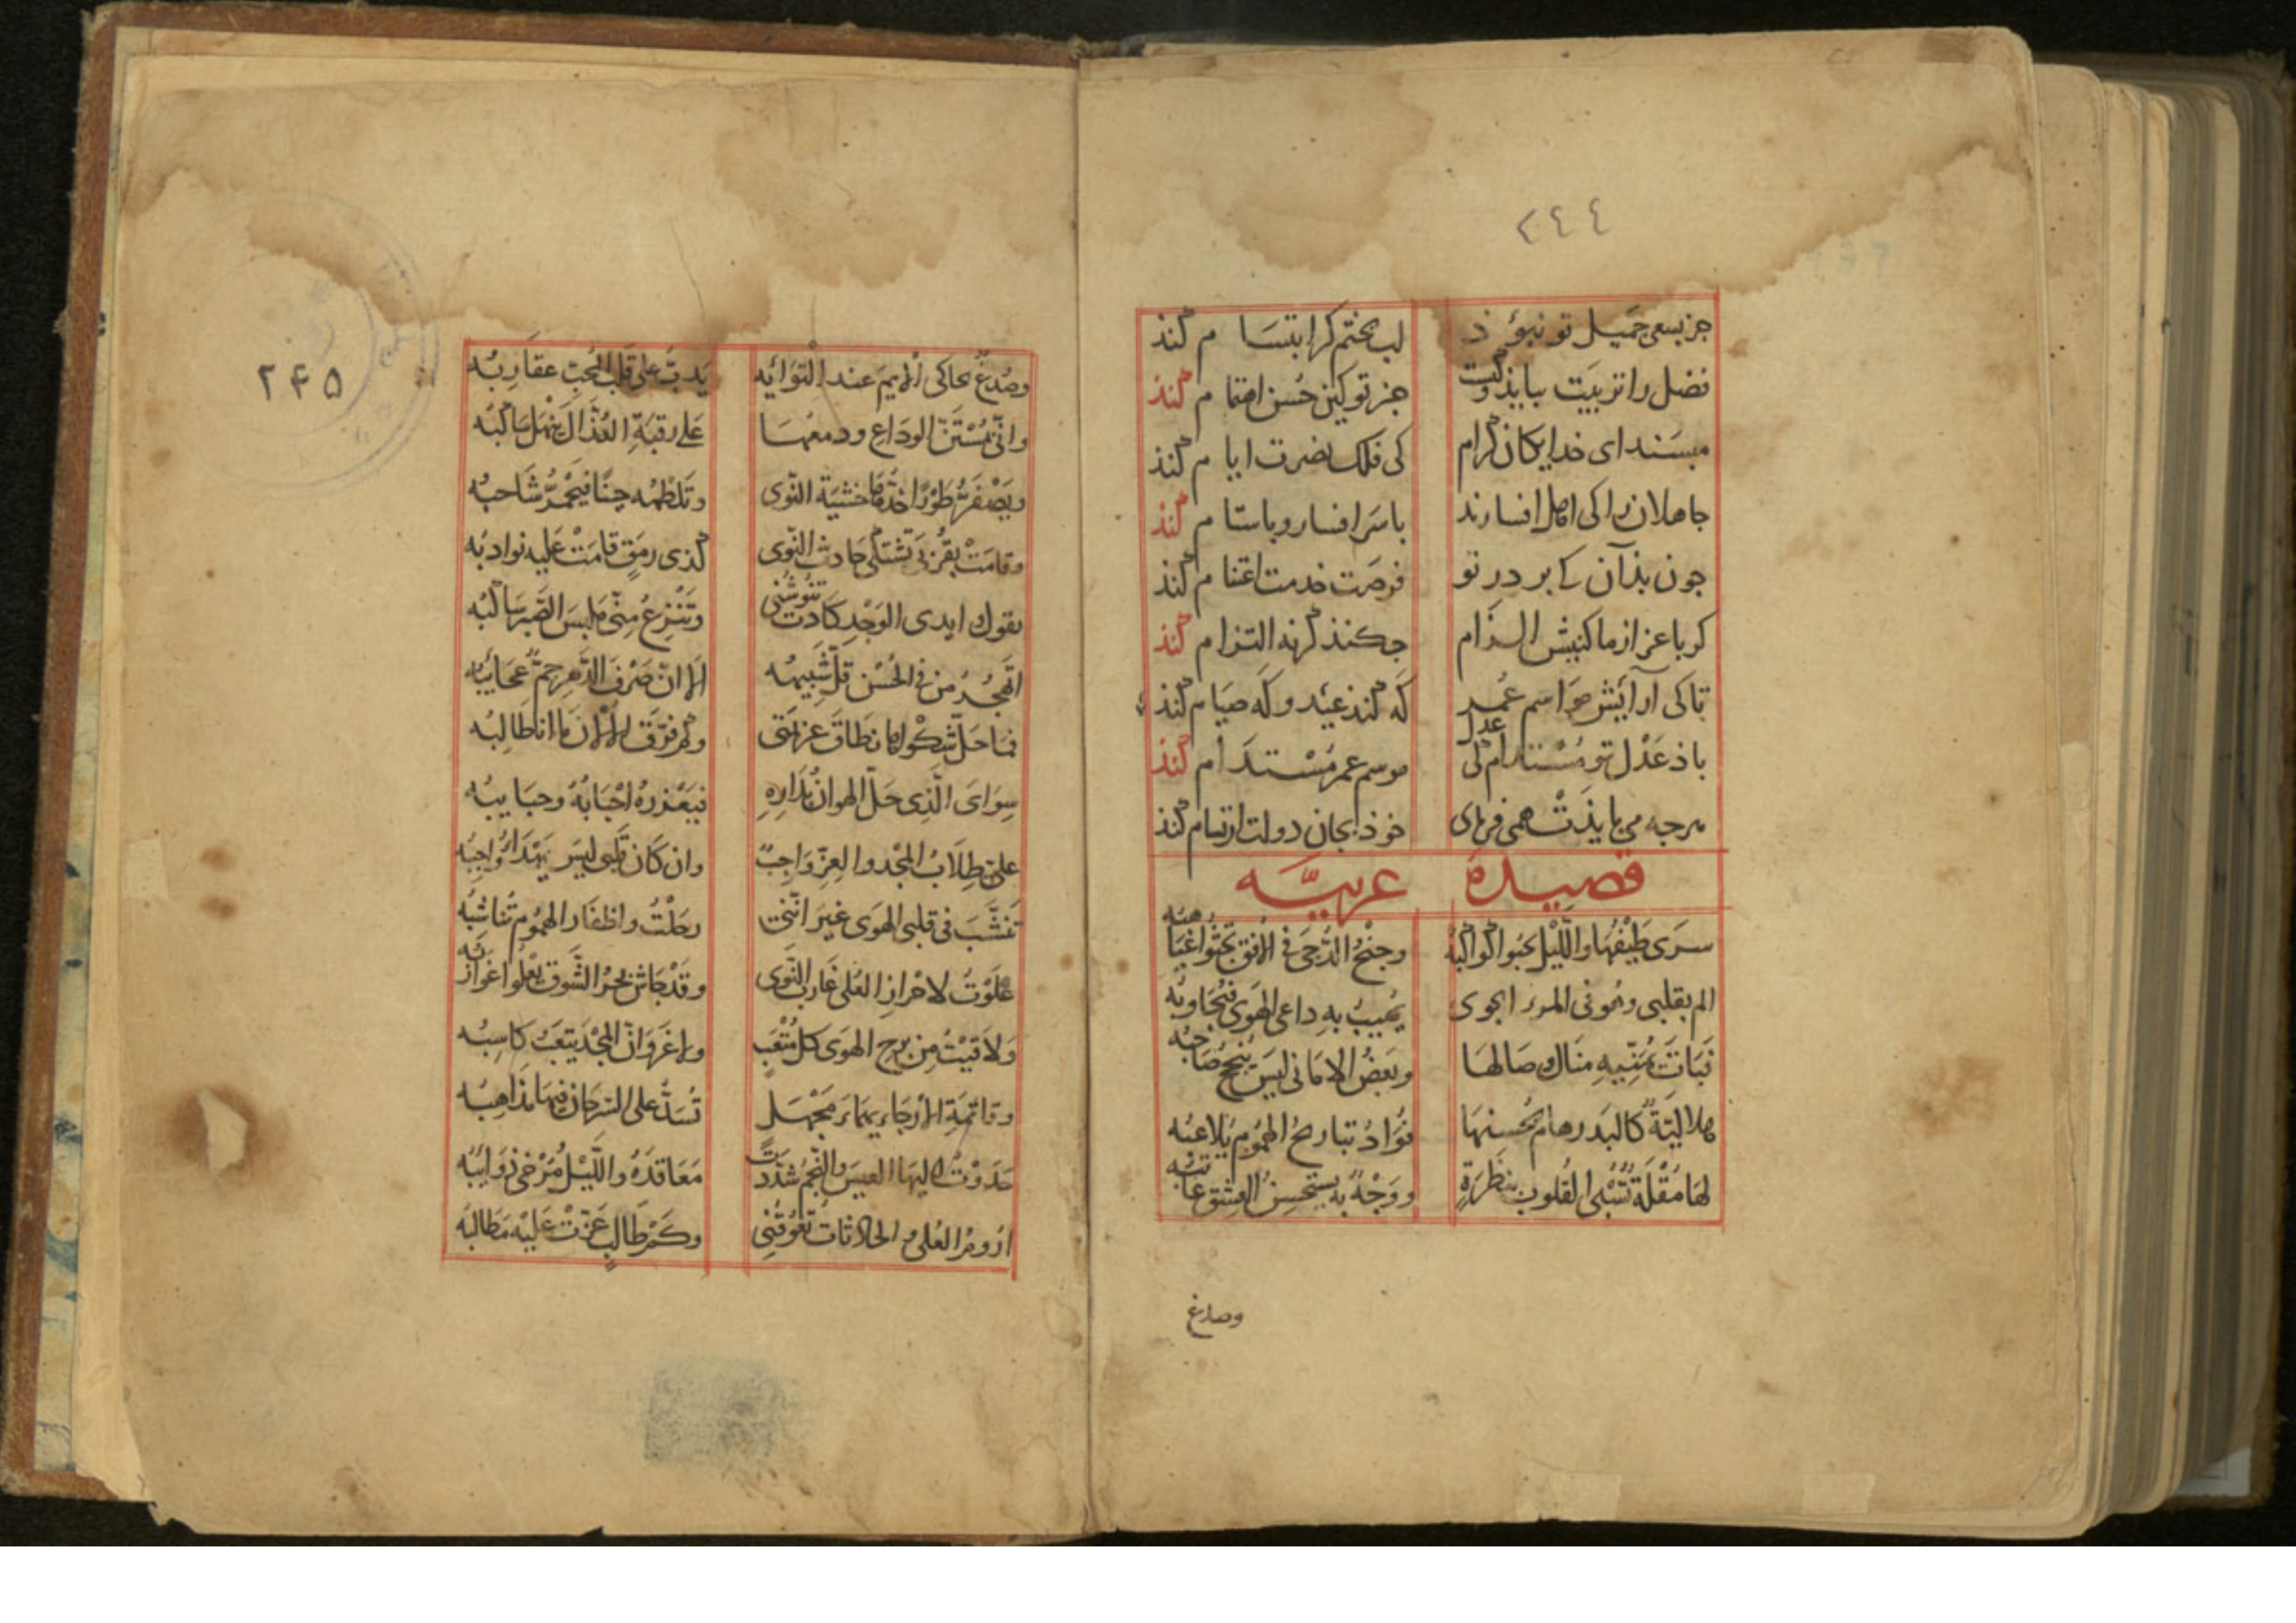 ٢٤٤
جز بسعی جمیل تو نبوذ لب بختم کرا بتسام کنذ
فضل را تربیت ببایذ و کیست جز تو کین حُسن اهتمام کنذ
مپسند ای خدایکان کرام کی فلک نصرت ایام کنذ
جاهلان را کی اهل افسارند با سر افسار و با ستام کنذ
جون بذآن کی بر در تو فرصت خدمت اغتنام کنذ
جکنذ کرنه التزام کنذ
تا کی آرایش مواسم عُمر که کنذ عید و که صیام کنذ
باذ عَدْل تو مُسْتدام کی عدل موسم عمر مُسْتدام کنذ
هرجه می بایذت همی فرمای خوذ بجان دولت ارتسام کنذ
قصیدة عربیّه
سَرَی طَیْفُهَا واللّیل تخبو کواکبُه وجنْحُ الدُّجَی فی الافق تَجْثُوا غیَاهبُه
الم بقلبی وهو فی یُهیبُ بهِ داعی الهَوَی فیُجَاوبُه
تُمَنّیهِ منَاك وصَالهَا وبَعضُ الامَانی لیسَ یُنجحُ صَاحبُه
هلالیّةٌ کالبَدر هام بحُسنهَا فؤادُ تباریحُ الهمُومِ یُلاعبُه
لهَا مُقْلَةٌ تُسْبی القُلوبَ بنَظرَةٍ ووَجْهٌ به یَستحسِنُ العِشقَ عَاتبُه
وصدغ
٢۴۵
وصُدغٌ یحاکی الایمَ عند التوَائهِ یَدبُّ علی قَلب المُحِبّ عقَاربُه
وانّی الودَاعِ ودمعُهَا عَلی رقبَةِ العُذّال یَنْهَلُ سَاکبُه
ویَصْفَرُّ طَوْرًا خدُّهَا خشیَة النّوی وتَلطِمُه حِینًا فیَحْمَرُّ شَاحبُه
وقامَتْ بقُرْبی تَشتکی حَادثَ النّوی کذی رمَقٍ قامَتْ عَلیه نوادبُه
بقول ایدی الوَجْدِ کَادت تنُوشُنی وتَنْزعُ مِنّی مَلبسَ الصَّبر سَالبُه
اتَهْجُرُ من فی الحُسْن قلّ شَبیهُه الا انّ صَرْفَ الدّهر جمٌّ عَجَائبُه
سِوَایَ الّذِی حَلّ الهوانُ بدَارهِ فیَعْذرهُ احْبَابُهُ وحبَایبُه
علیّ طِلَابُ المجْد والعِزّ وَاجبٌ وان کَان قَلبی لیسَ یَهْدَأ وَاجبُه
تَنشّبَ فی قلبی الهوَی غیرَ انّنی رحَلْتُ واظفَار الهمُوم تُناشبُه
عَلَوْتُ لاحْرازِ العُلی غَاربَ النّوی وقَدْ جَاشَ بحْرُ الشّوق یَعْلوا غَواربُه
وَلاقَیْتُ مِن بَرح الهوَی کلّ مُتْعَبٍ ولا غَرْوَ انّ المجْدَ یَتعَبُ کَاسِبُه
وقاتمَةِ الارْجَاء یهمَاءَ مَجْهَلٍ تُسَدُّ علی السّرحان فیهَا مَذَاهِبُه
حَدَوْتُ الیهَا العیسَ والنّجمُ شُدّدتْ مَعَاقدُهُ واللّیْلُ مُرْخی ذوَائبُه
ارُومُ العُلی والحادثاتُ تعُوقُنِی وکَمْ طَالبٍ عَزّتْ عَلیْه مَطَالبُه